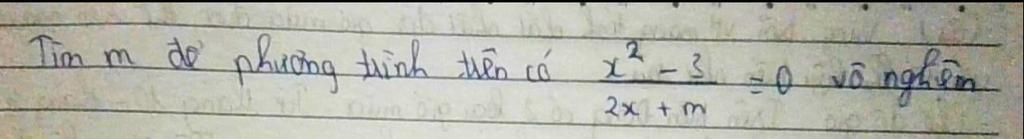 Tìm m để phương trình trên có x² - 3 / 2x + m = 0 vô nghiệm